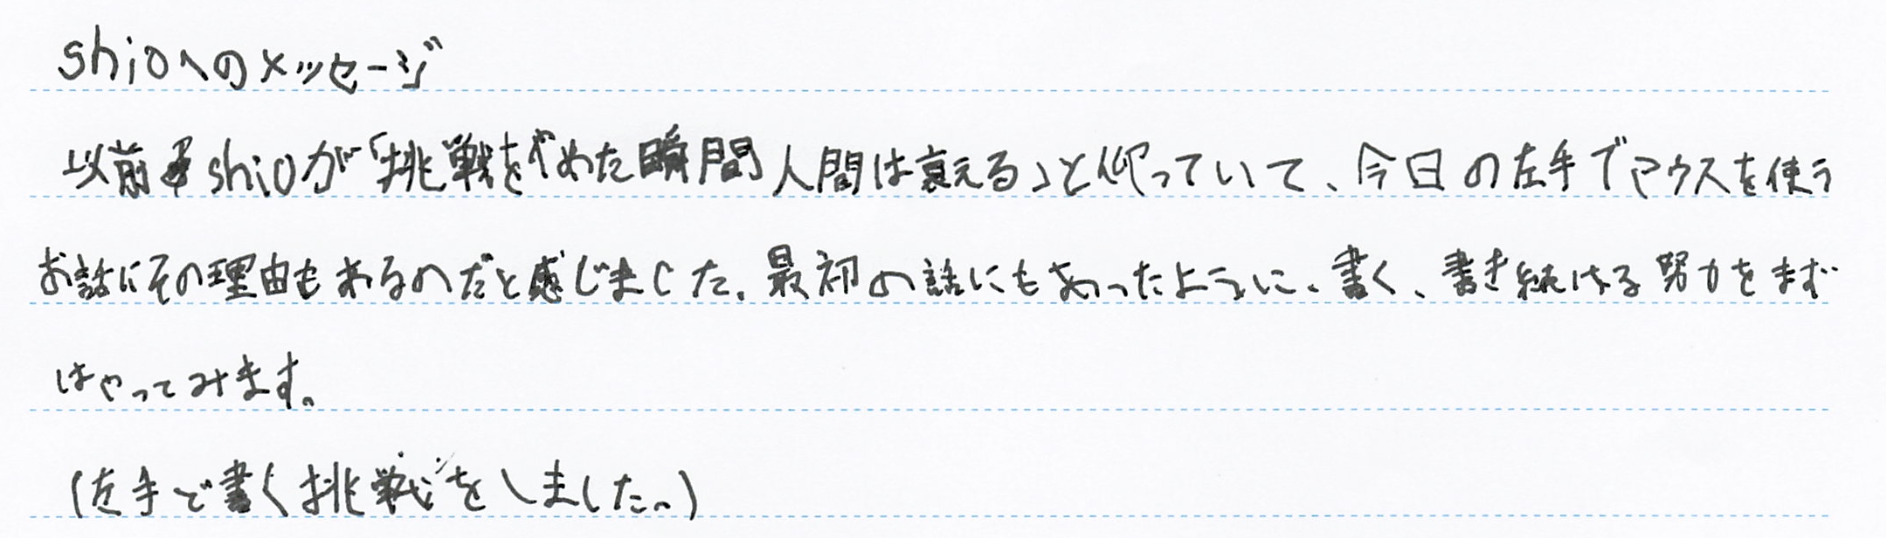 shioへのメッセージ
以前shioが「挑戦をやめた瞬間人間は衰える」と仰っていて、今日の左手でマウスを使う
お話にその理由もあるのだと感じました。最初の話にもあったように、書く、書き続ける努力をまず
はやってみます。
(左手で書く挑戦をしました。)